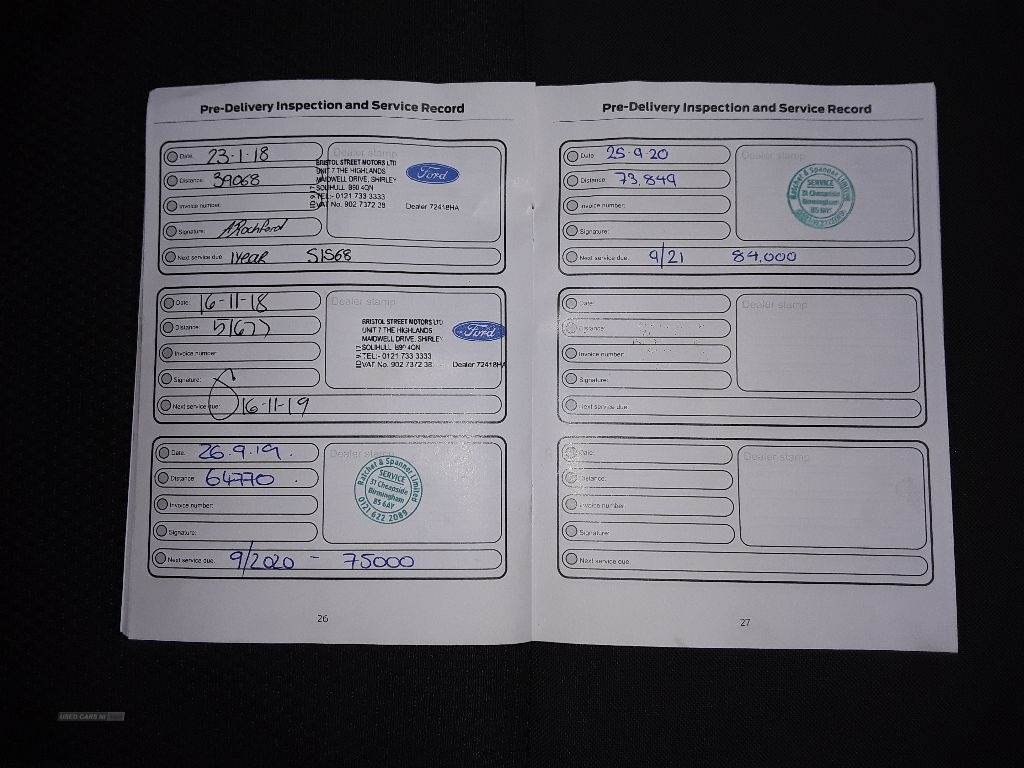 Pre-Delivery Inspection and Service Record
Date: 23·1·18
Distance: 39068
Invoice number:
Signature: ARochford
Next service due: 1year 51568
Dealer stamp
BRISTOL STREET MOTORS LTD
UNIT 7 THE HIGHLANDS
MAIDWELL DRIVE, SHIRLEY
SOLIHULL B90 4QN
TEL:- 0121 733 3333
VAT No. 902 7372 38
Ford
Dealer 72418HA
Date: 16-11-18
Distance:
Invoice number
Signature:
Next service due: 16-11-19
Dealer stamp
BRISTOL STREET MOTORS LTD
UNIT 7 THE HIGHLANDS
MAIDWELL DRIVE, SHIRLEY
SOLIHULL B90 4QN
TEL:- 0121 733 3333
VAT No. 902 7372 38
Ford
Dealer 72418HA
Date: 26.9.19.
Distance: 64770
Invoice number:
Signature:
Next service due: 9/2020 - 75000
Dealer stamp
Ratchet & Spanner Limited
SERVICE
31 Cheapside
Birmingham
B5 6AY
0121 622 2089
26
Pre-Delivery Inspection and Service Record
Date: 25·9·20
Distance: 73,849
Invoice number:
Signature:
Next service due: 9/21 84,000
Dealer stamp
Ratchet & Spanner Limited
SERVICE
31 Cheapside
Birmingham
B5 6AY
Date:
Distance:
Invoice number:
Signature:
Next service due:
Dealer stamp
Date:
Distance:
Invoice number:
Signature:
Next service due:
Dealer stamp
27
USED CARS NI